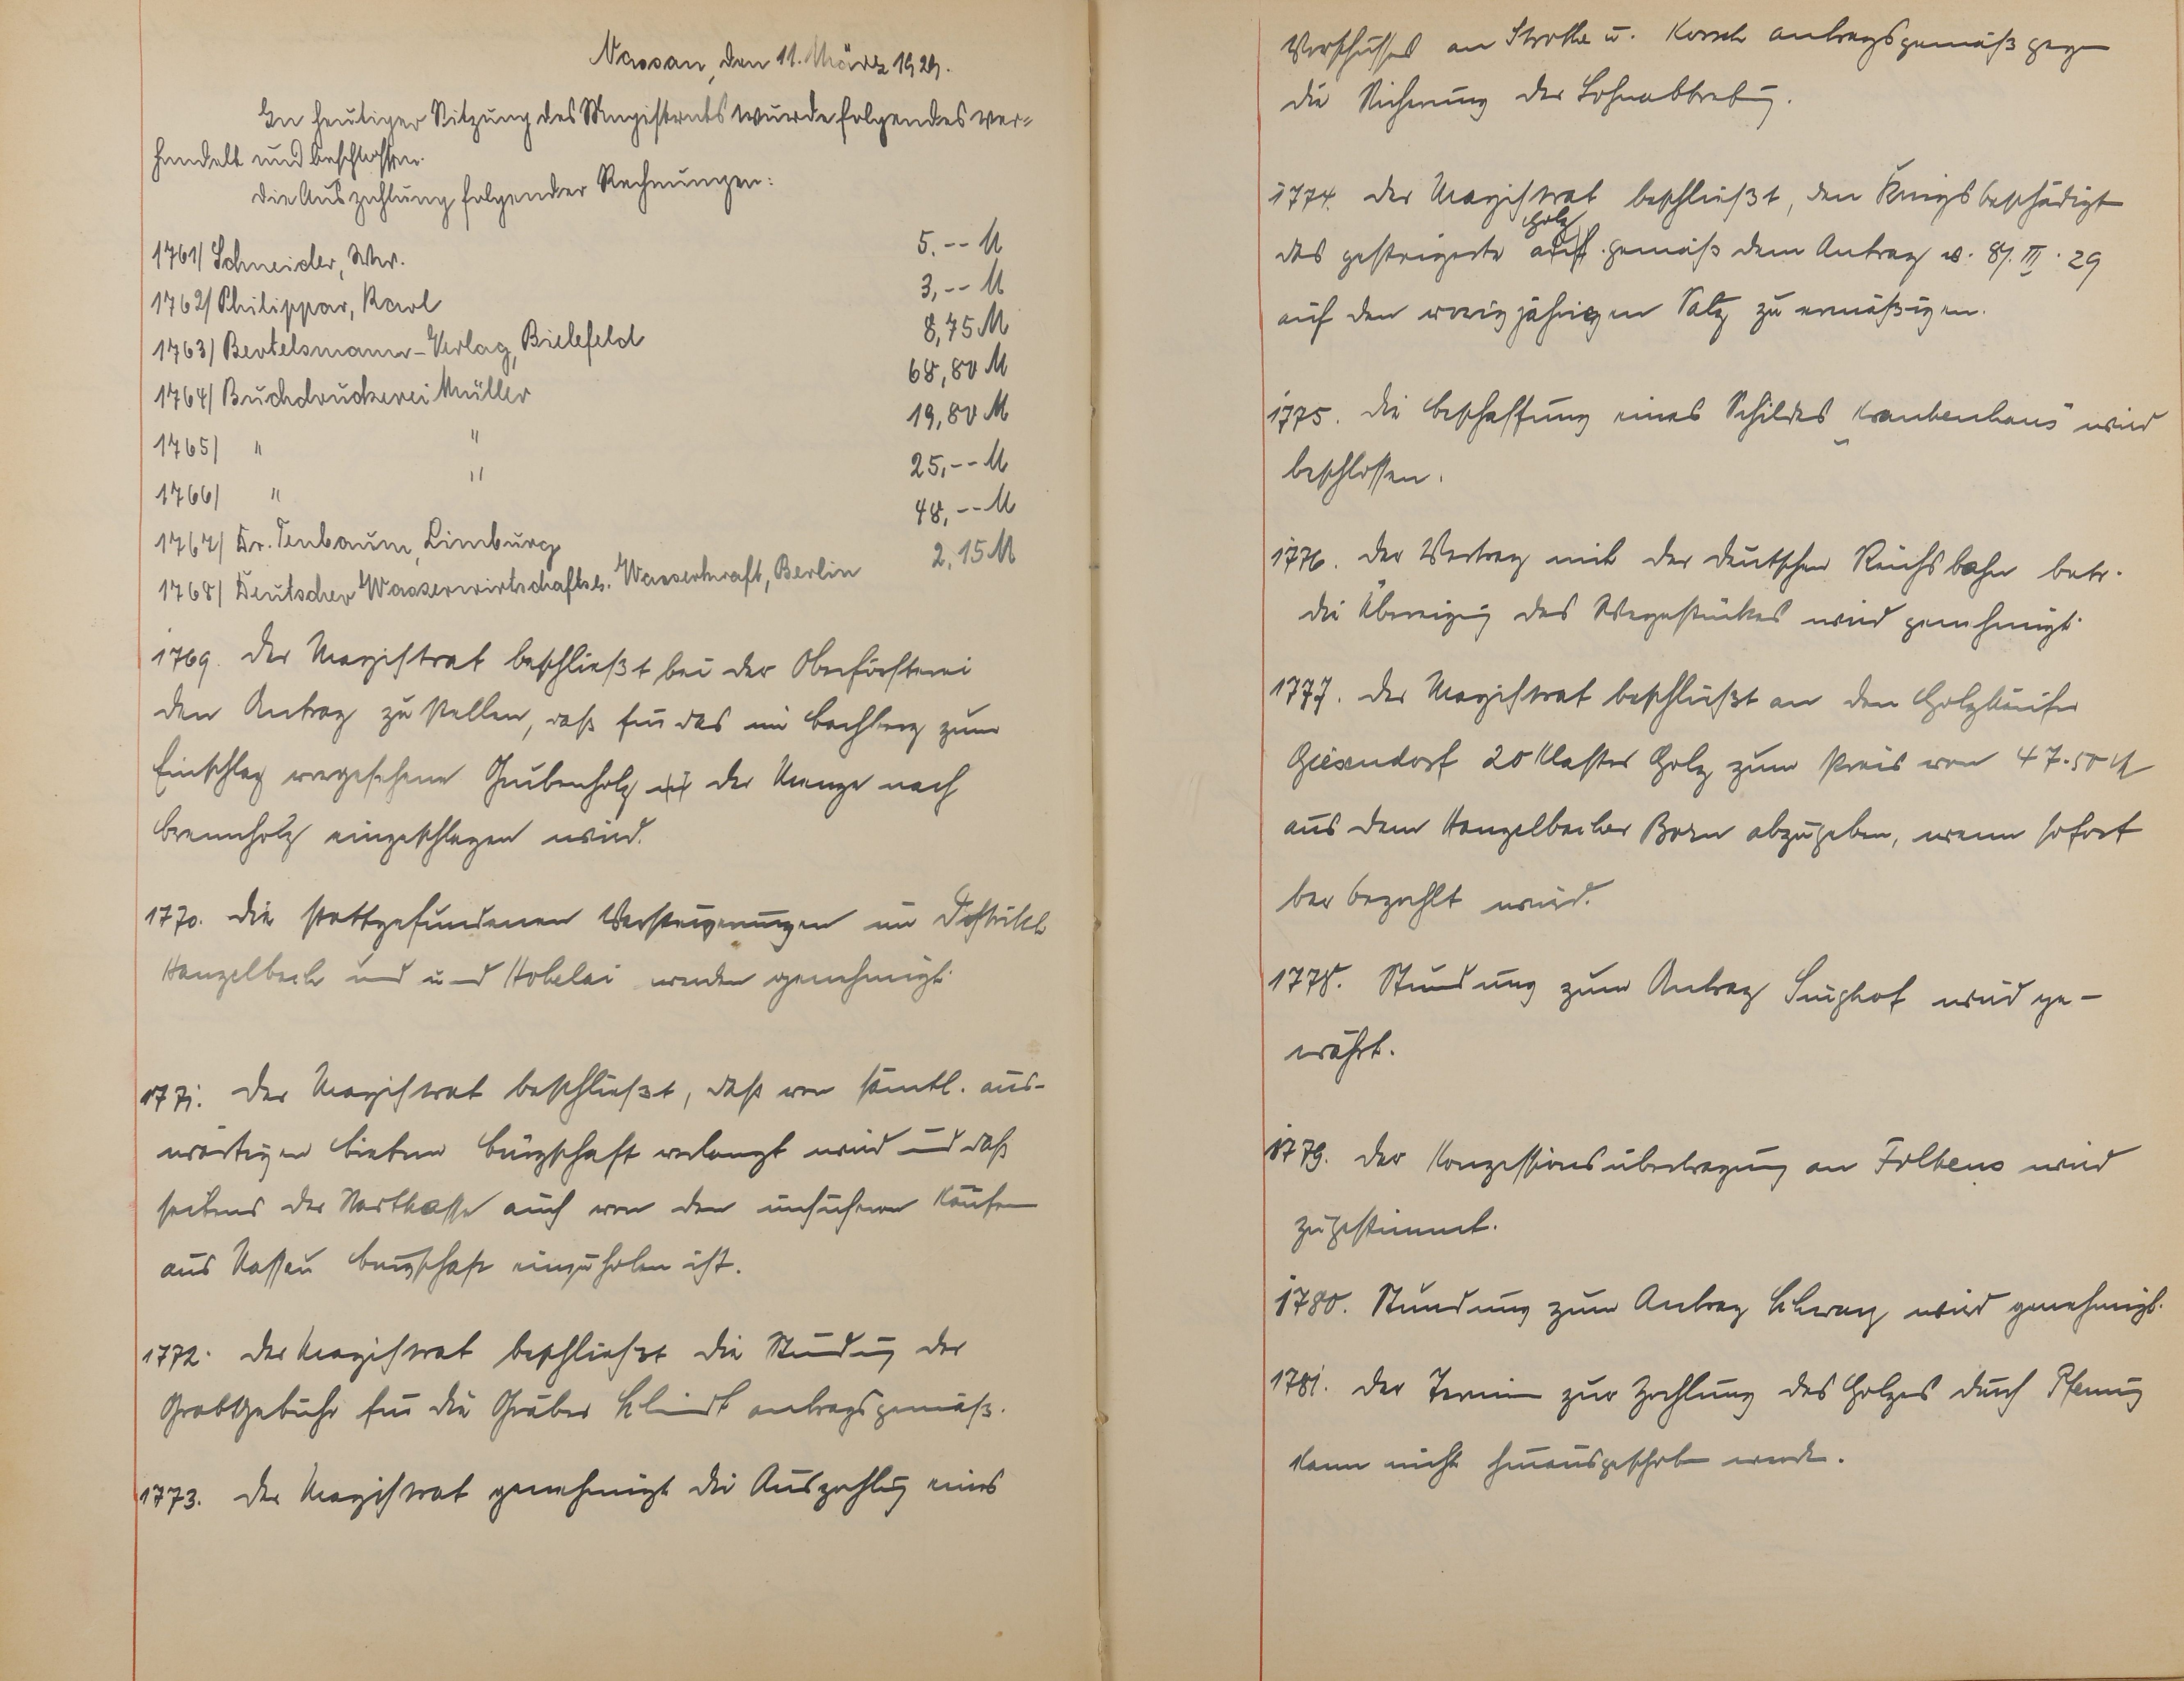 Nassau, den 11. März 1929.
In heutiger Sitzung des Magistrats wurde folgendes ver=
handelt und beschlossen.
Die Auszahlung folgender Rechnungen:
1761/ Schneider, Ww. 5.-- M
1762/ Philippar, Karl 3,-- M
1763/ Bertelsmann-Verlag, Bielefeld 8,75 M
1764/ Buchdruckerei Müller 68,80 M
1765/ " " 19,80 M
1766/ " " 25,-- M
1767/ Dr. Tenbaum, Limburg 48,-- M
1768/ Deutscher Wasserwirtschafts. Wasserkraft, Berlin 2,15 M
1769. Der Magistrat beschließt bei der Oberförsterei
den Antrag zu stellen, daß für das im Bachberg zum
Einschlag vorgesehene Grubenholz der Menge nach
Brennholz eingeschlagen wird.
1770. Die stattgefundenen Versteigerungen im Distrikt
Hanzelbach und und Hohelai werden genehmigt.
1771. Der Magistrat beschließt, daß von sämtl. aus-
wärtigen Bietern Bürgschaft verlangt wird und daß
seitens der Stadtkasse auch von den unsicheren Käufern
aus Nassau Bürgschaft einzuholen ist.
1772. Der Magistrat beschließt die Stundung der
Grabgebühr für die Gräber antragsgemäß.
1773. Der Magistrat genehmigt die Auszahlung eines
Vorschusses an Strothe u. Korsch antragsgemäß gegen
die Sicherung der Lohnabtretung.
1774. Der Magistrat beschließt, den Kriegsbeschädigt
das gesteigerte Holz gemäß dem Antrag v. 8/. III. 29
auf den vorigjährigen Satz zu ermäßigen.
1775. Die Beschaffung eines Schildes „Krankenhaus" wird
beschlossen.
1776. Der Vertrag mit der Deutschen Reichsbahn betr.
die Übereignung des Wegestückes wird genehmigt.
1777. Der Magistrat beschließt an den Holzkäufer
Giesendorf 20 Klafter Holz zum Preis von 47.50 M
aus dem Hanzelbacher Born abzugeben, wenn sofort
bar bezahlt wird.
1778. Stundung zum Antrag wird ge-
währt.
1779. Der Konzessionsübertragung an wird
zugestimmt.
1780. Stundung zum Antrag wird genehmigt.
1781. Der Termin zur Zahlung des Holzes durch Pfennig
kann nicht hinausgeschoben werden.